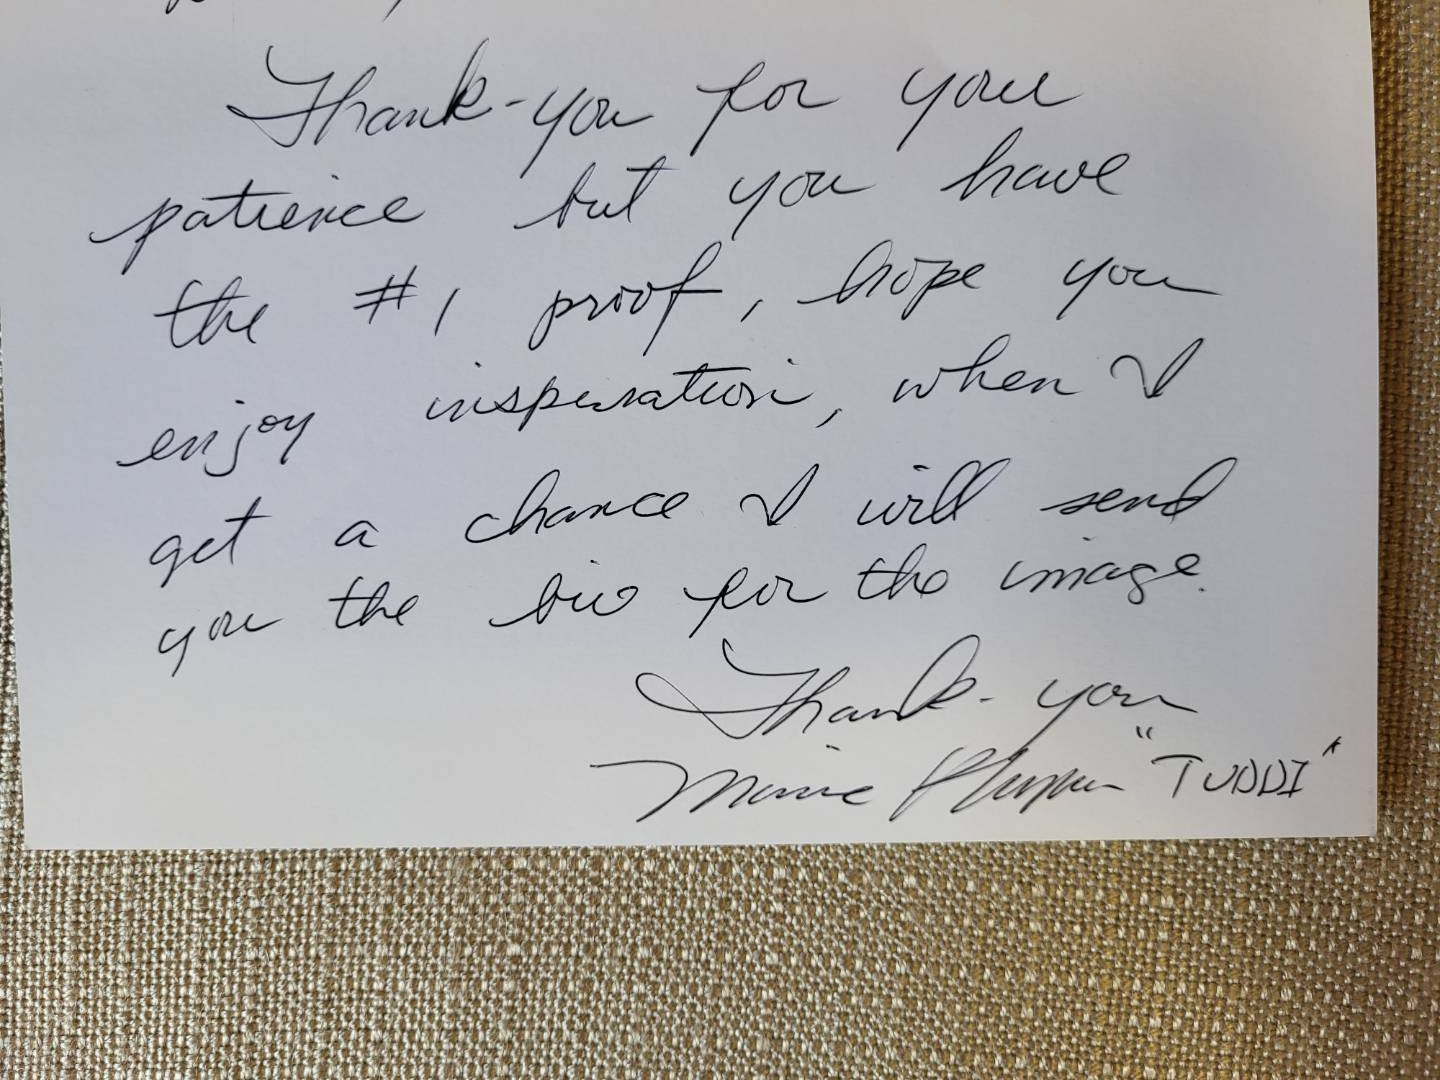 Thank-you for your
patience but you have
the #1 proof, hope you
enjoy inspiration, when I
get a chance I will send
you the bio for the image.
Thank-you
"TUDDI"